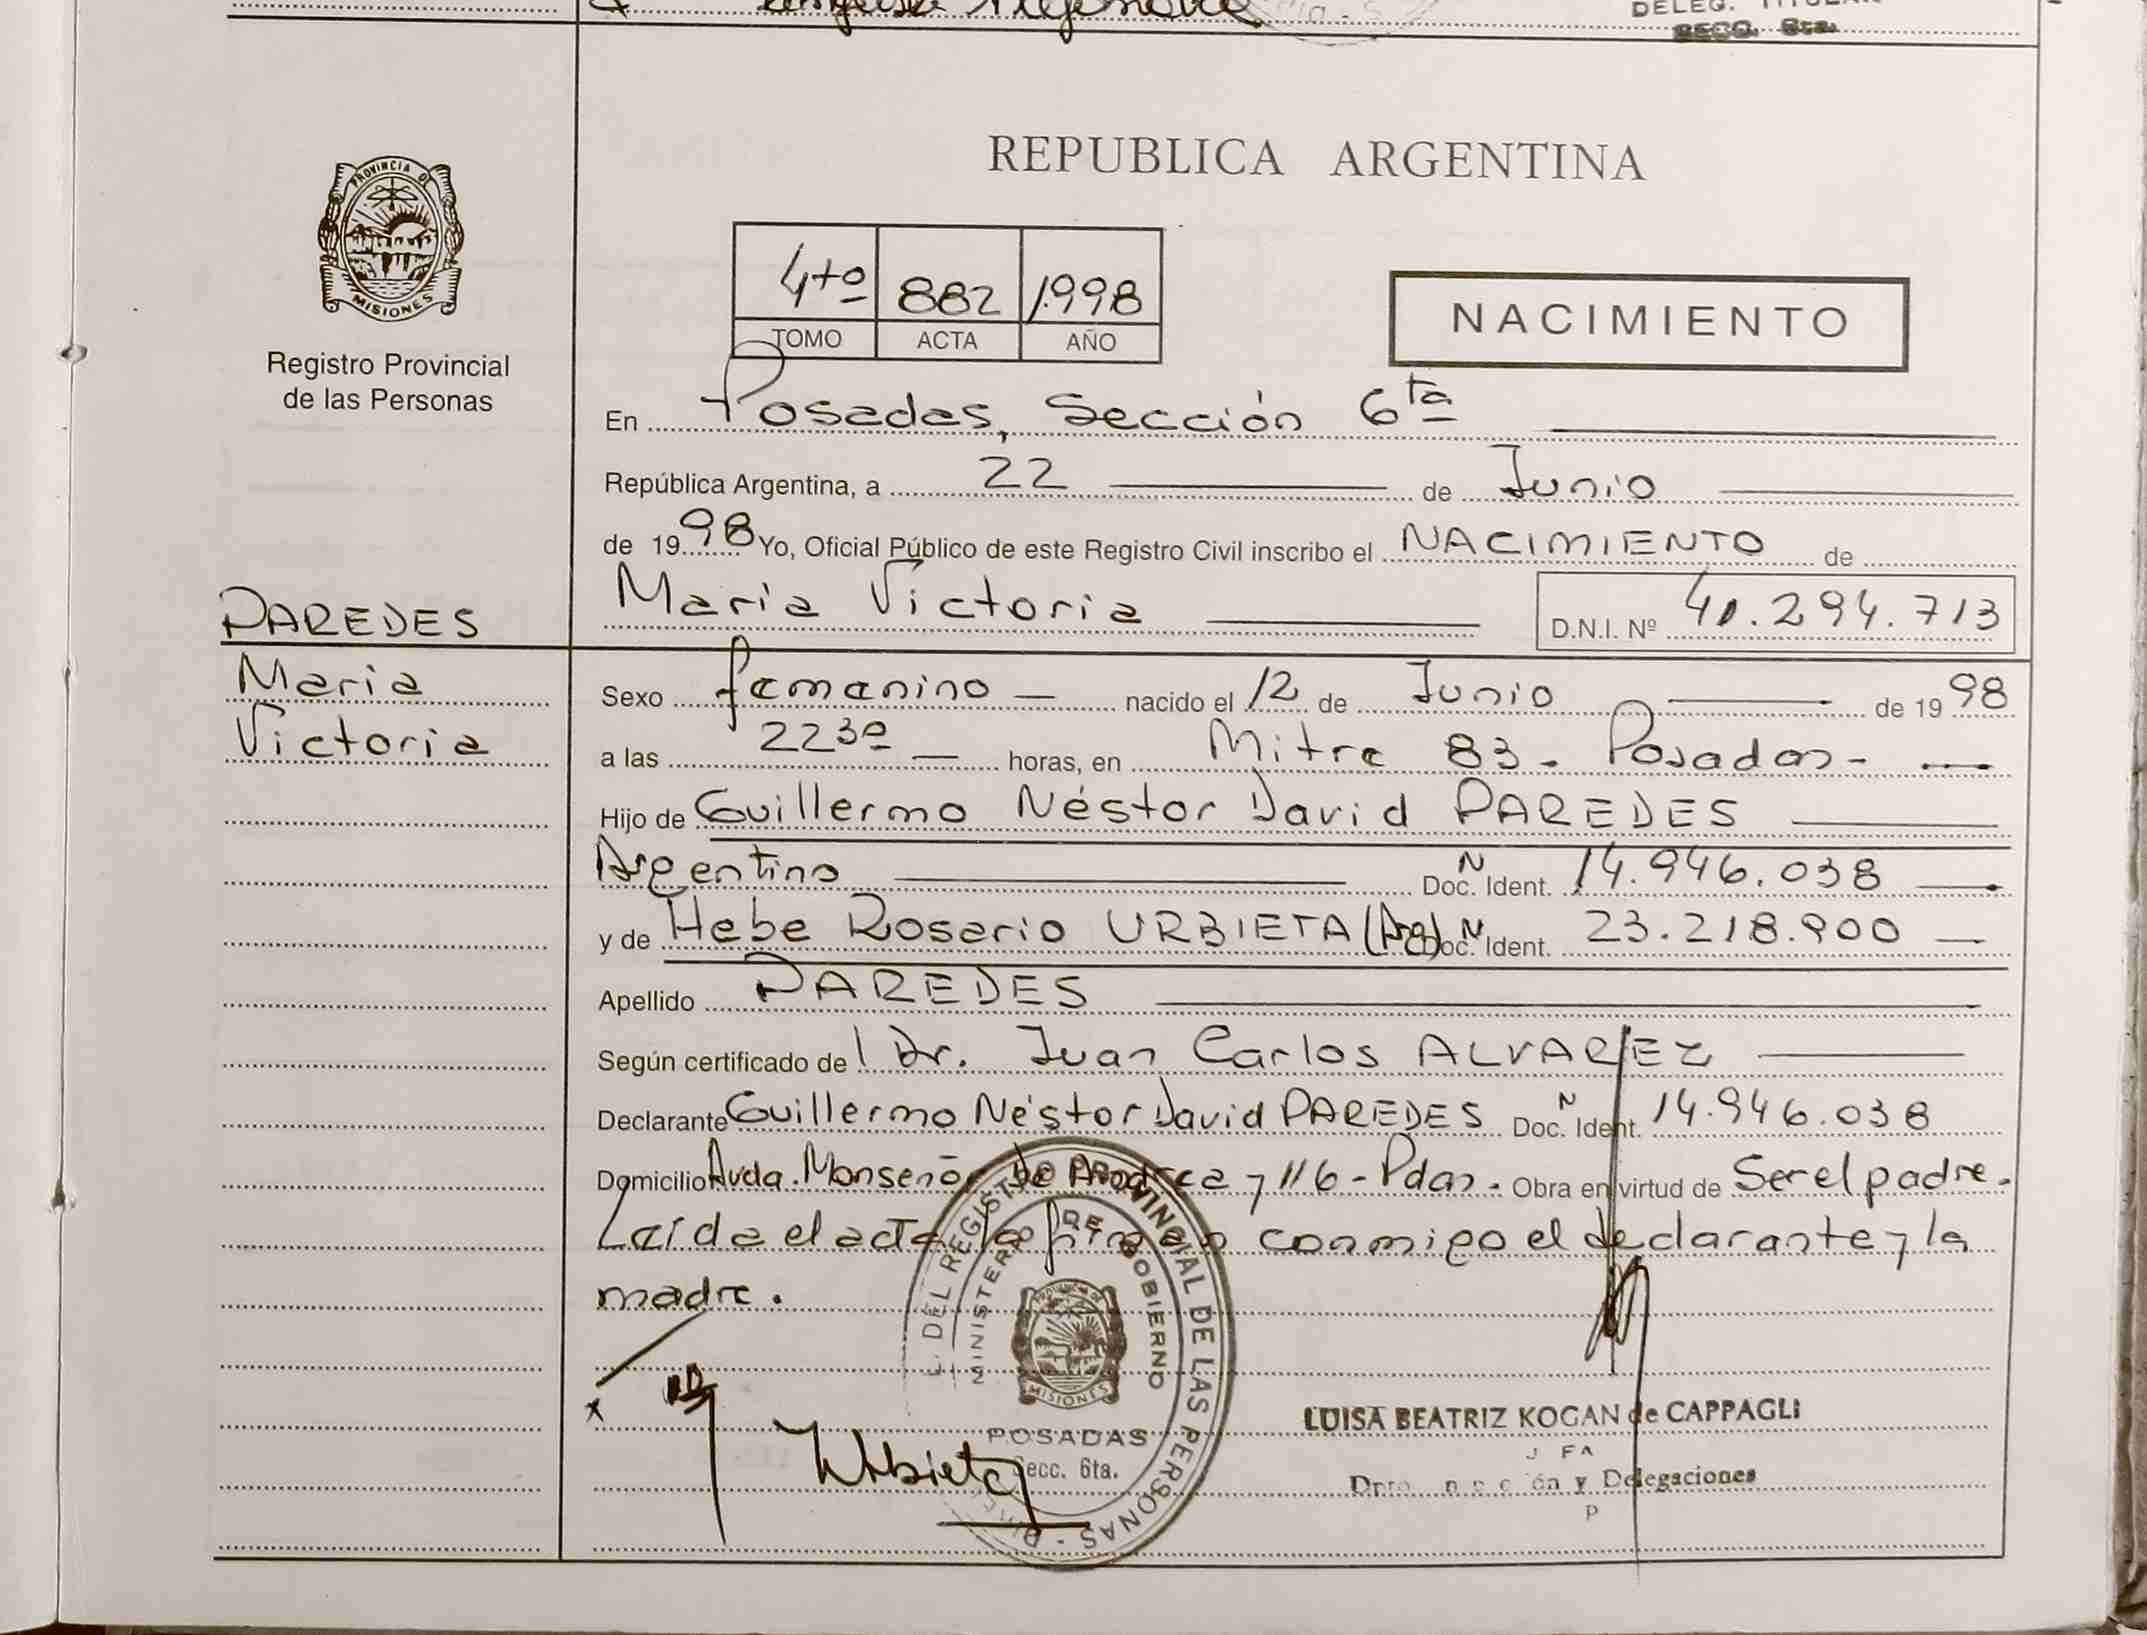 DELEG. TITULAR
SECC. 6ta.
PROVINCIA DE
MISIONES
Registro Provincial
de las Personas
REPUBLICA ARGENTINA
4to 882 1998
TOMO ACTA AÑO
NACIMIENTO
En Posadas, Sección 6ta
República Argentina, a 22 de Junio
de 1998 Yo, Oficial Público de este Registro Civil inscribo el NACIMIENTO de
Maria Victoria D.N.I. Nº 41.294.713
PAREDES
Maria
Victoria
Sexo femenino nacido el 12 de Junio de 1998
a las 2230 horas, en Mitre 83 - Posadas -
Hijo de Guillermo Néstor David PAREDES
Argentino Doc. Ident. N 14.946.038
y de Hebe Rosario URBIETA (Arg) Doc. Ident. N 23.218.900
Apellido PAREDES
Según certificado de l Dr. Juan Carlos ALVAREZ
Declarante Guillermo Néstor David PAREDES Doc. Ident. N 14.946.038
Domicilio Avda. Monseñor De Andrea y 116 - Pdas. Obra en virtud de Ser el padre.
Leída el acta la firman conmigo el declarante y la
madre.
DEL REGISTRO PROVINCIAL DE LAS PERSONAS
MINISTERIO DE GOBIERNO
PROVINCIA DE
MISIONES
POSADAS
Secc. 6ta.
x
Urbieta
LUISA BEATRIZ KOGAN de CAPPAGLI
y Delegaciones